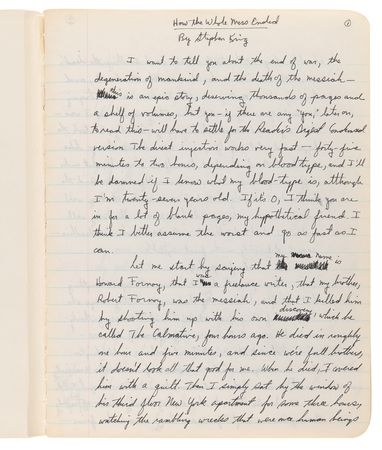 How the Whole Mess Ended
①
By Stephen King
I want to tell you about the end of war, the
degeneration of mankind, and the death of the messiah—
this is an epic story, deserving thousands of pages and
a shelf of volumes, but you—if there are any "you," later on,
to read this—will have to settle for the Reader's Digest Condensed
version. The direct injection works very fast—forty-five
minutes to two hours, depending on blood type, and I'll
be damned if I know what my blood-type is, although
I'm twenty-seven years old. If it's O, I think you are
in for a lot of blank pages, my hypothetical friend. I
think I better assume the worst and go as fast as I
can.
Let me start by saying that my name is
Howard Fornoy, that I was a freelance writer, that my brother,
Robert Fornoy, was the messiah, and that I killed him
by shooting him up with his own discovery, which he
called The Calmative, four hours ago. He died in roughly
one hour and five minutes, and since we're full brothers,
it doesn't look all that good for me. When he died, I covered
him with a quilt. Then I simply sat by the window of
his third floor New York apartment for some three hours,
watching the rambling wrecks that were once human beings